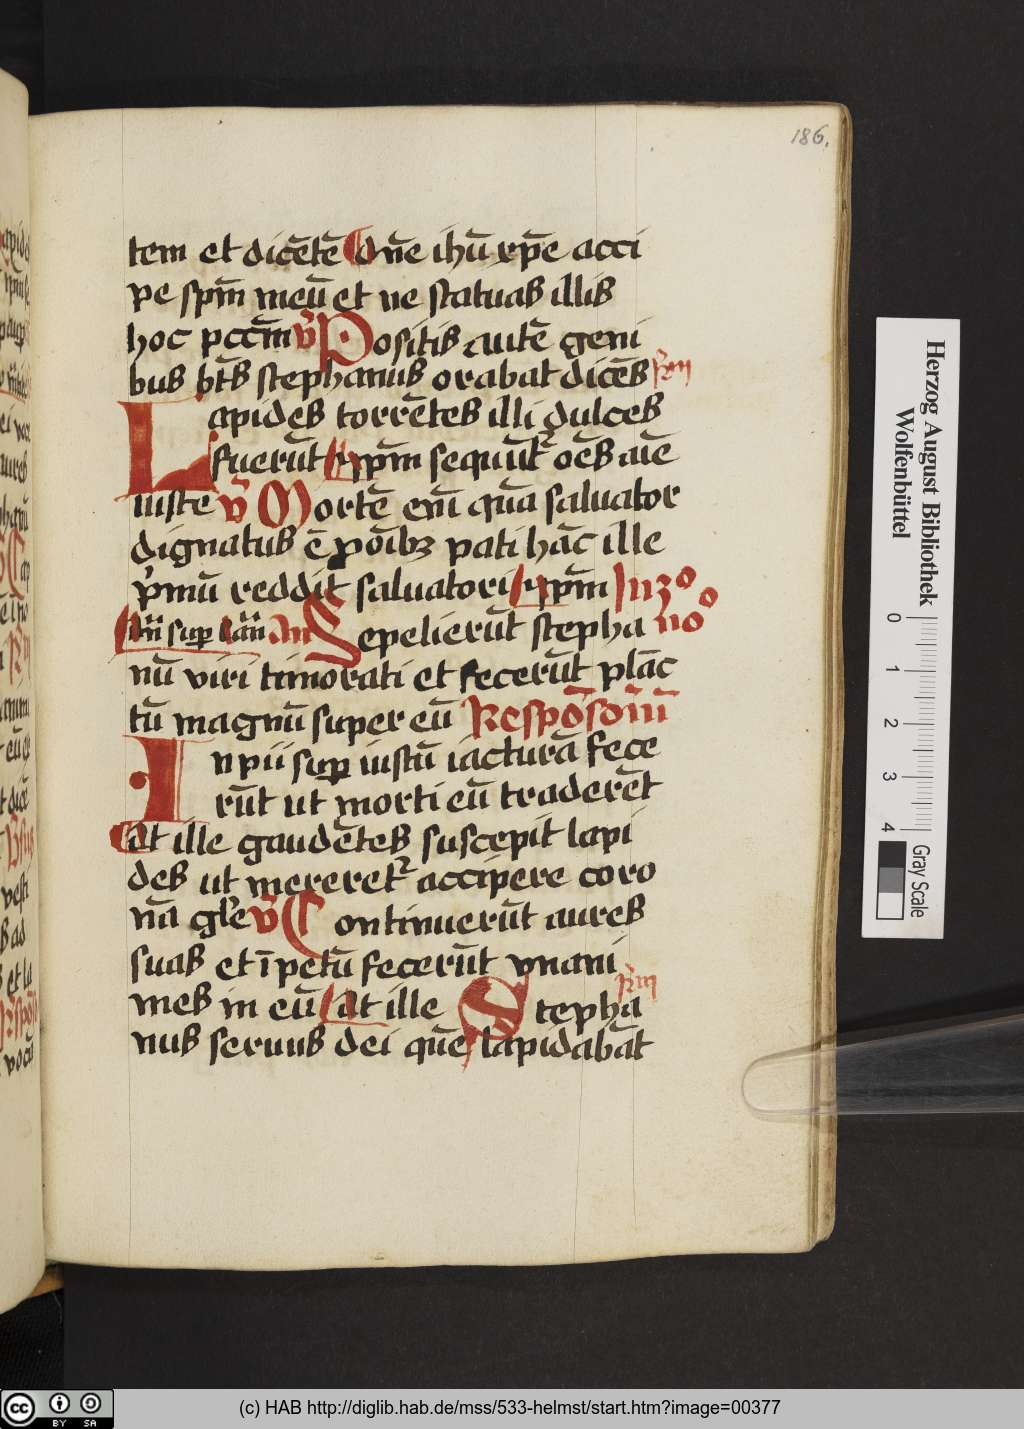 186.
tem et dicētē dn̄e ihū xp̄e acci
pe spm̄ meū et ne statuas illis
hoc pccm̄ v̄ Positis autē geni
bus bt̄s stephanus orabat dicēs
Lapides torrētes illi dulces
fuerūt Ipm̄ sequūt᷑ oēs aīe
iuste v̄ Mortē em̄ quā saluator
dignatus ē p oībꝫ pati hāc ille
pⁱmū reddit saluatori Ipm̄ In 3º
sup lām an Sepelierūt stepha noº
nū viri timorati et fecerūt plāc
tū magnū super eū Respōsoriū
Inpii sup iustū iacturā fece
rūt ut morti eū traderēt
At ille gaudētes suscepit lapi
des ut mereret᷑ accipere coro
nā gl̄e v̄ Continuerūt aures
suas et īpetū fecerūt vnani
mes in eū At ille Stepha
nus seruus dei quē lapidabāt
Herzog August Bibliothek
Wolfenbüttel
0 1 2 3 4
Gray Scale
cc BY SA
(c) HAB http://diglib.hab.de/mss/533-helmst/start.htm?image=00377